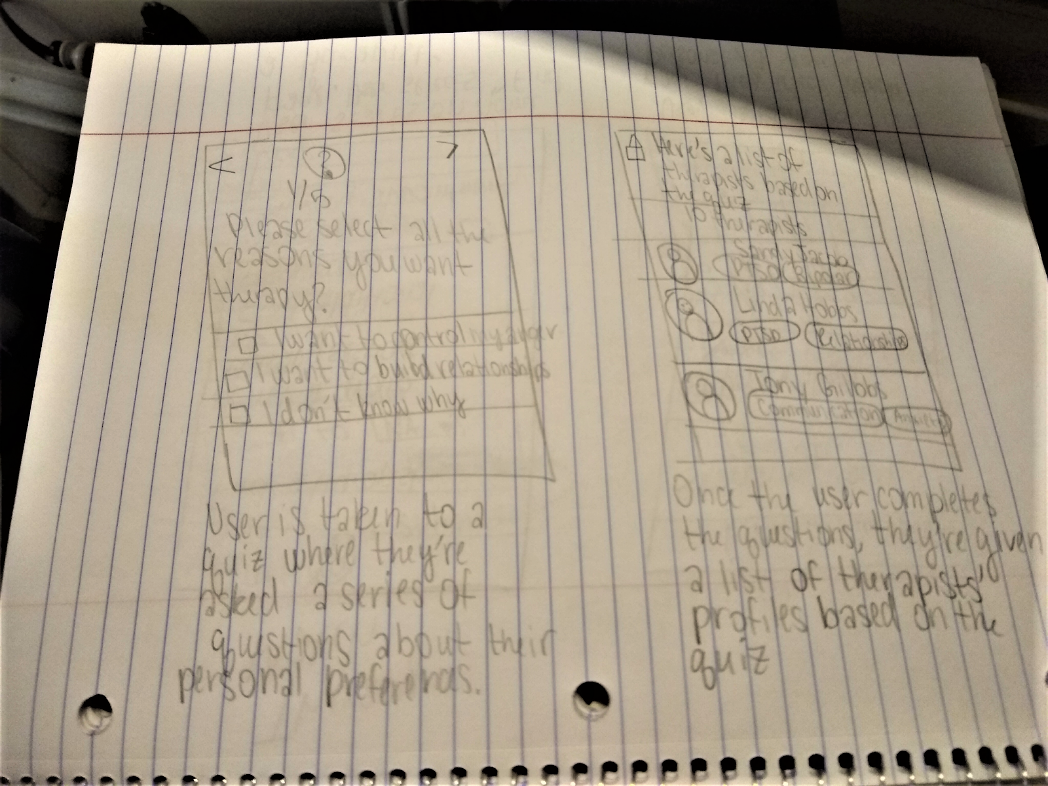 <
?
>
1/5
Please select all the
reasons you want
therapy?
I want to control my anger
I want to build relationships
I don't know why
User is taken to a
quiz where they're
asked a series of
questions about their
personal preferences.
Here's a list of
therapists based on
the quiz
10 therapists
Sandy
PTSD Bipolar
Linda Hobbs
PTSD Relationships
Tony
Communication Anxiety
Once the user completes
the questions, they're given
a list of therapists'
profiles based on the
quiz